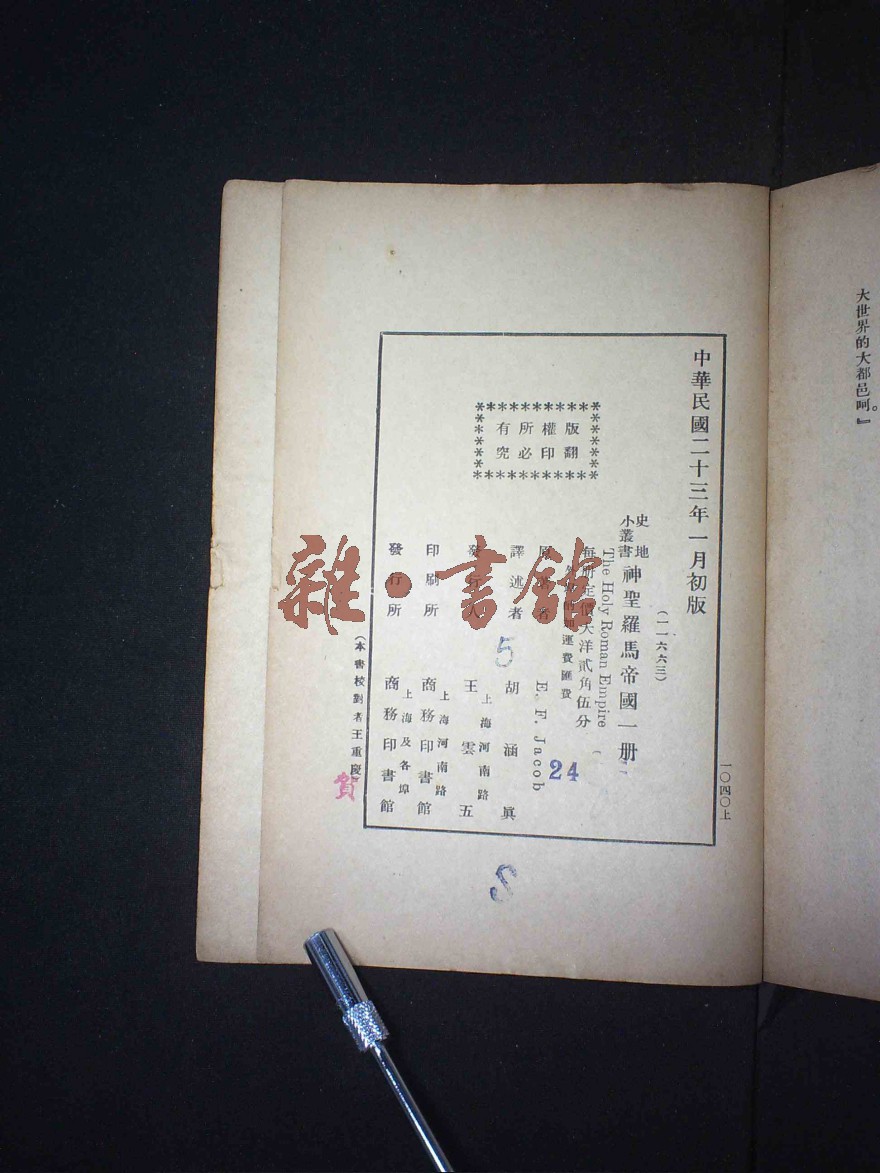 大世界的大都邑呵。』
中華民國二十三年一月初版
一〇四〇上
(一一六六三)
史地小叢書 神聖羅馬帝國一册
The Holy Roman Empire
每册定價大洋貳角伍分
運費匯費
24
版權所有
翻印必究
E. F. Jacob
譯述者 胡涵眞
5
王雲五
上海河南路
印刷所 商務印書館
上海河南路
發行所 商務印書館
上海及各埠
(本書校對者王重慶
賀
雜·書館